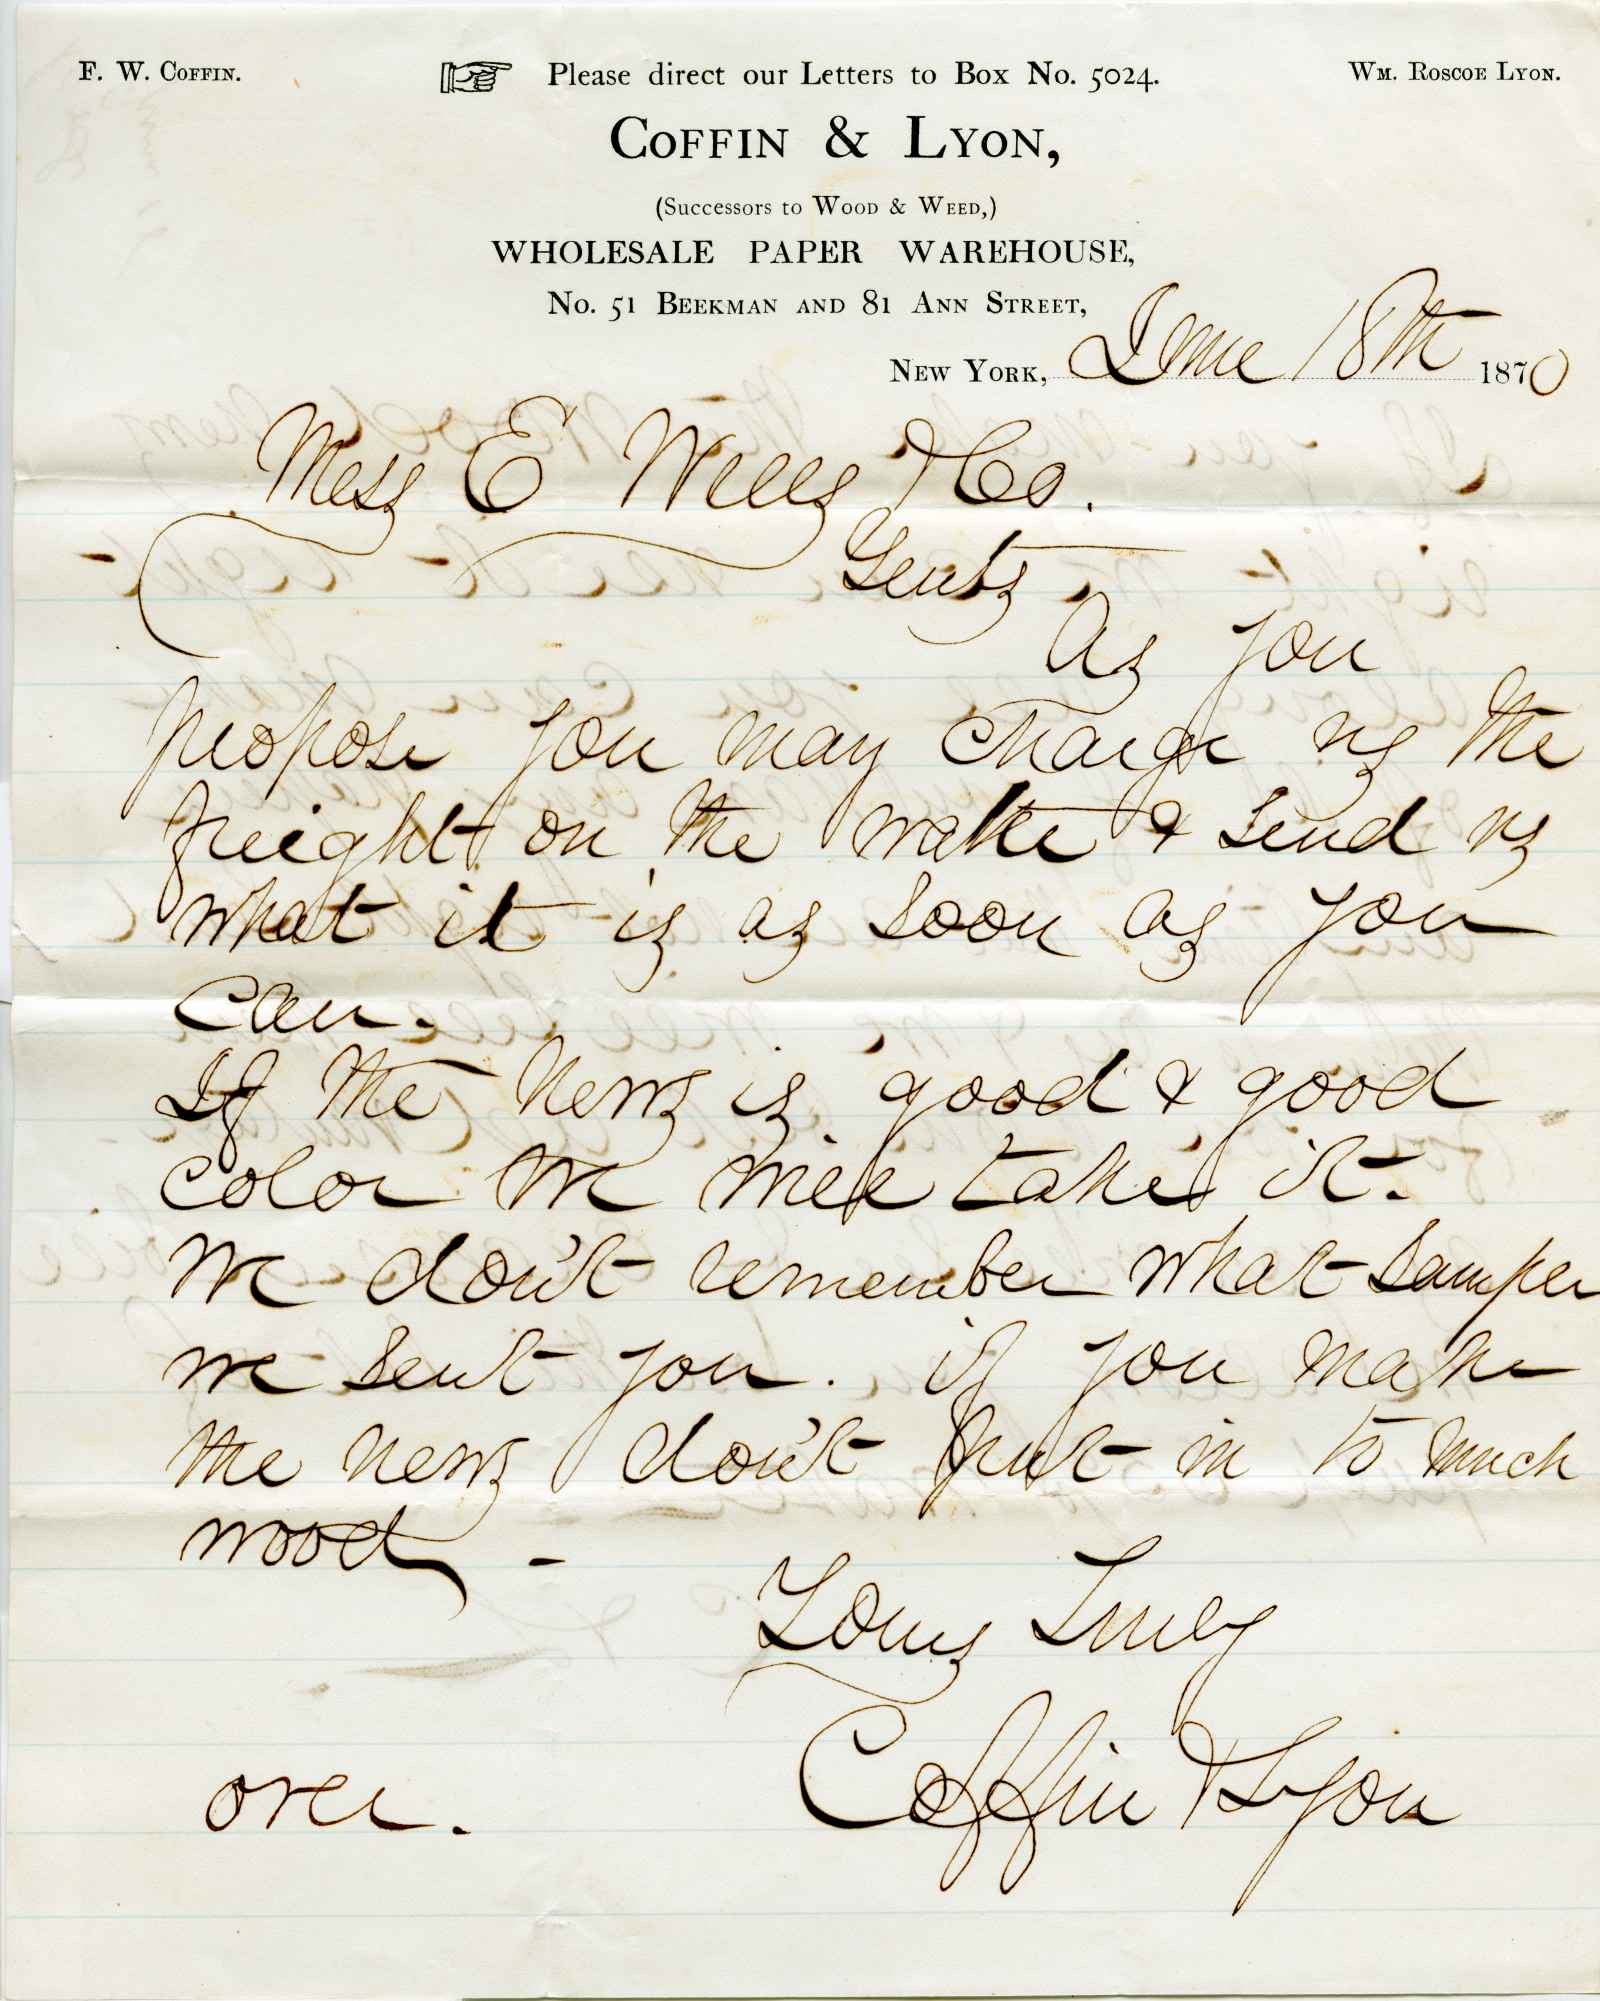 F. W. Coffin.
Please direct our Letters to Box No. 5024.
Wm. Roscoe Lyon.
Coffin & Lyon,
(Successors to Wood & Weed,)
WHOLESALE PAPER WAREHOUSE,
No. 51 Beekman and 81 Ann Street,
New York, June 18th 1870
Mess E Wells & Co.
Gents
As you
propose you may charge us the
freight on the & send us
what it is as soon as you
can.
If the News is good & good
color we will take it.
We don't remember what samper
we sent you. if you make
the news don't put in to much
wood -
Yours Truly
Coffin & Lyon
over.